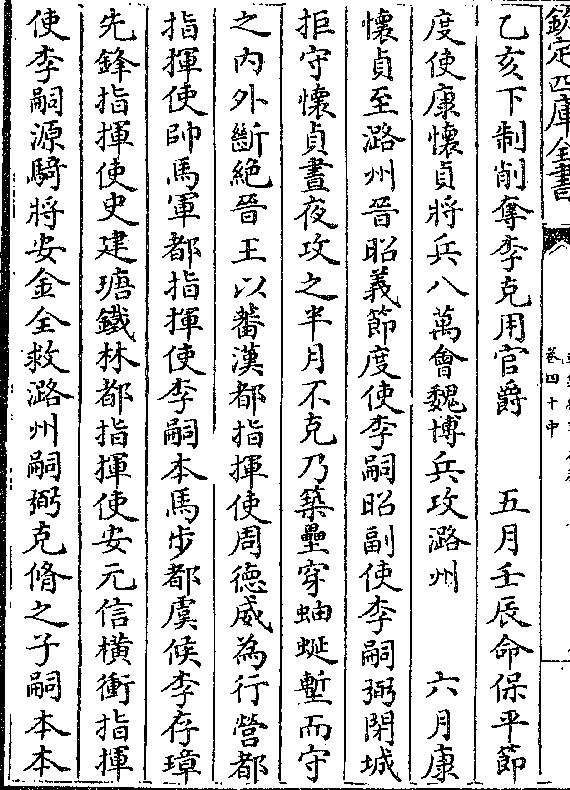 欽定四庫全書
卷四十中
乙亥下制削奪李克用官爵　五月壬辰命保平節
度使康懷貞將兵八萬會魏博兵攻潞州　六月康
懷貞至潞州晉昭義節度使李嗣昭副使李嗣弼閉城
拒守懷貞晝夜攻之半月不克乃築壘穿蚰蜒塹而守
之內外斷絶晉王以蕃漢都指揮使周德威為行營都
指揮使帥馬軍都指揮使李嗣本馬步都虞候李存璋
先鋒指揮使史建瑭鐵林都指揮使安元信橫衝指揮
使李嗣源騎將安金全救潞州嗣弼克脩之子嗣本本